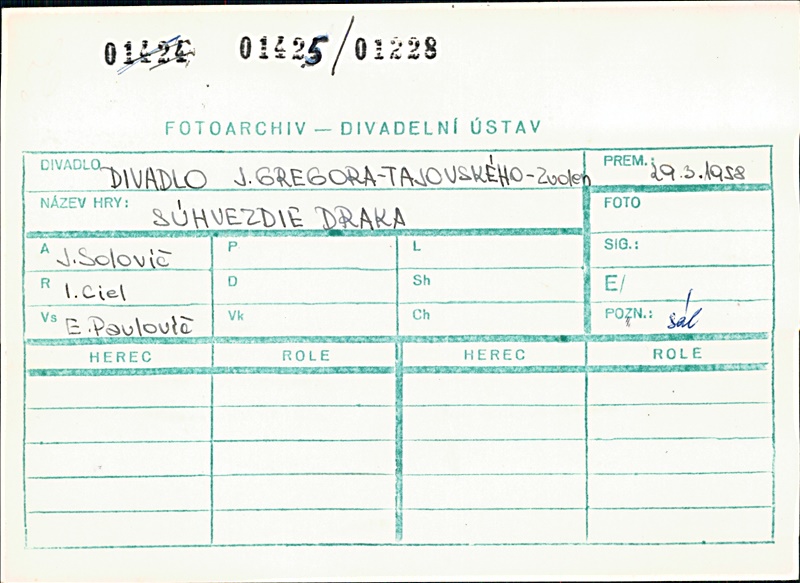 01424 01425/01228
FOTOARCHIV — DIVADELNÍ ÚSTAV
DIVADLO DIVADLO J. GREGORA-TAJOVSKÉHO-Zvolen PREM.: 29.3.1958
NÁZEV HRY: SÚHVEZDIE DRAKA FOTO
A J. Solovič P L SIG.:
R I. Ciel D Sh E/
Vs E. Pavlovič Vk Ch POZN.: sál
HEREC ROLE HEREC ROLE